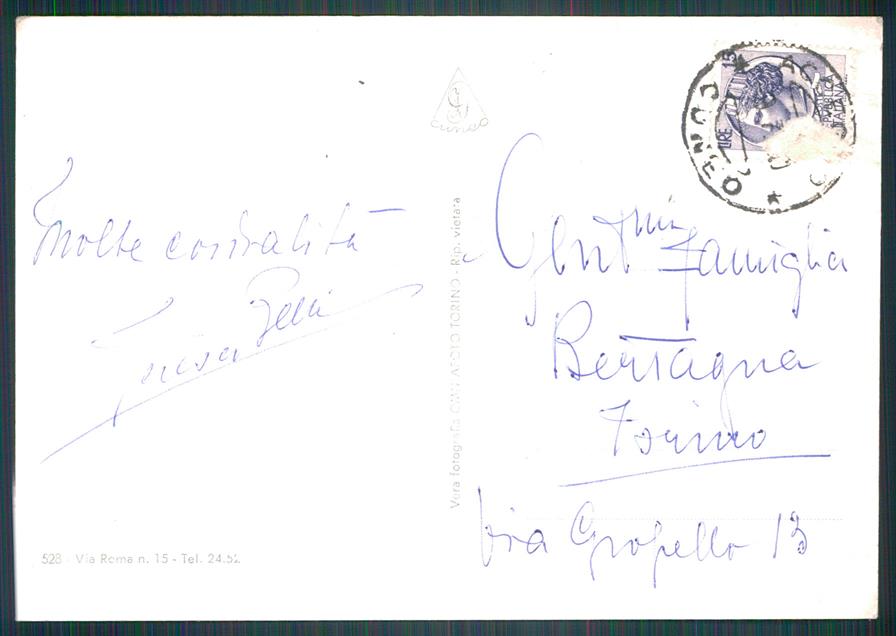 Molte cordialità
Gent.mia Famiglia
Bertagna
Torino
Via Gropello 13
528 - Via Roma n. 15 - Tel. 24.52
Vera fotografia - TORINO - Rip. vietata
Cuneo
CUNEO
LIRE 15
REPUBBLICA
ITALIANA